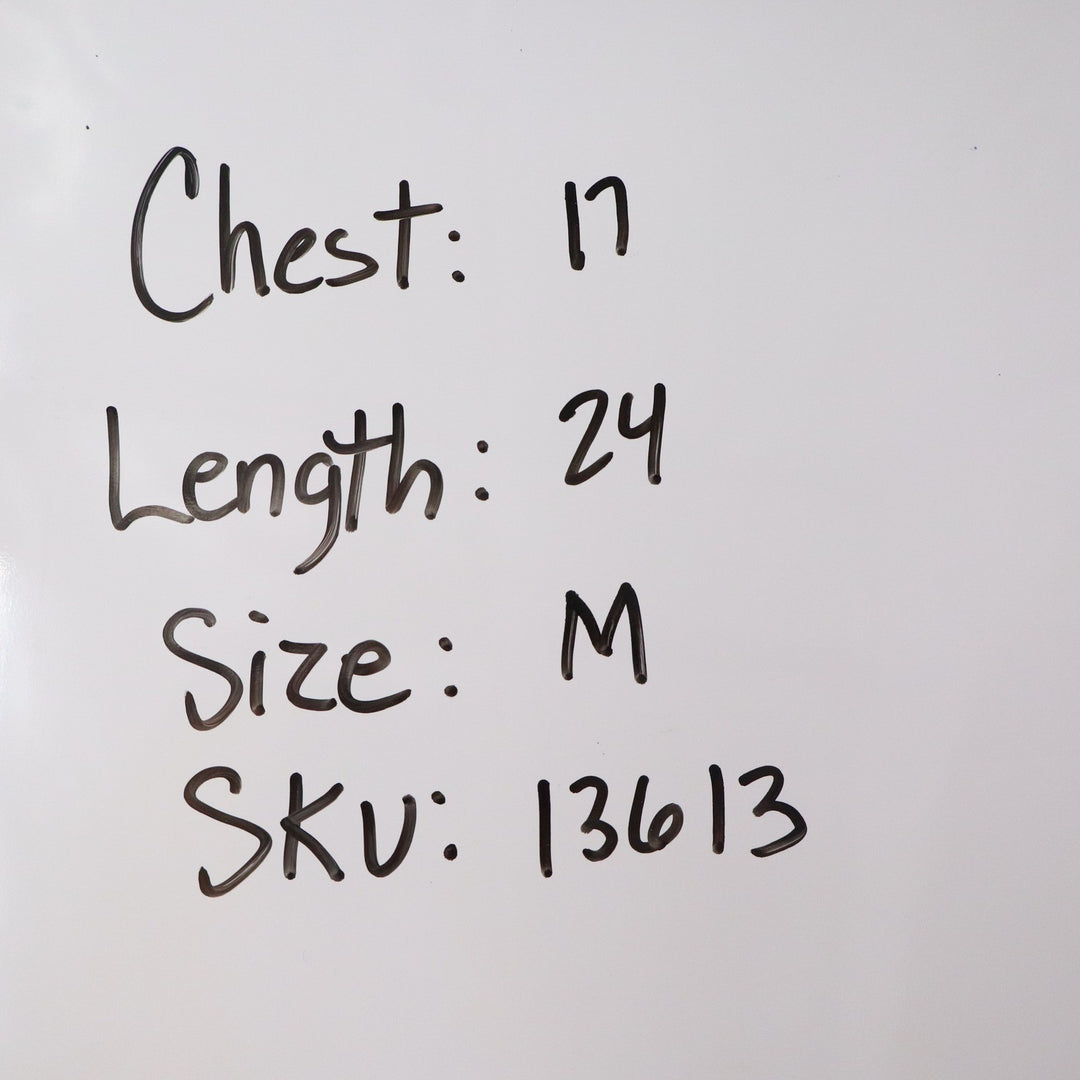 Chest: 17
Length: 24
Size: M
SKU: 13613